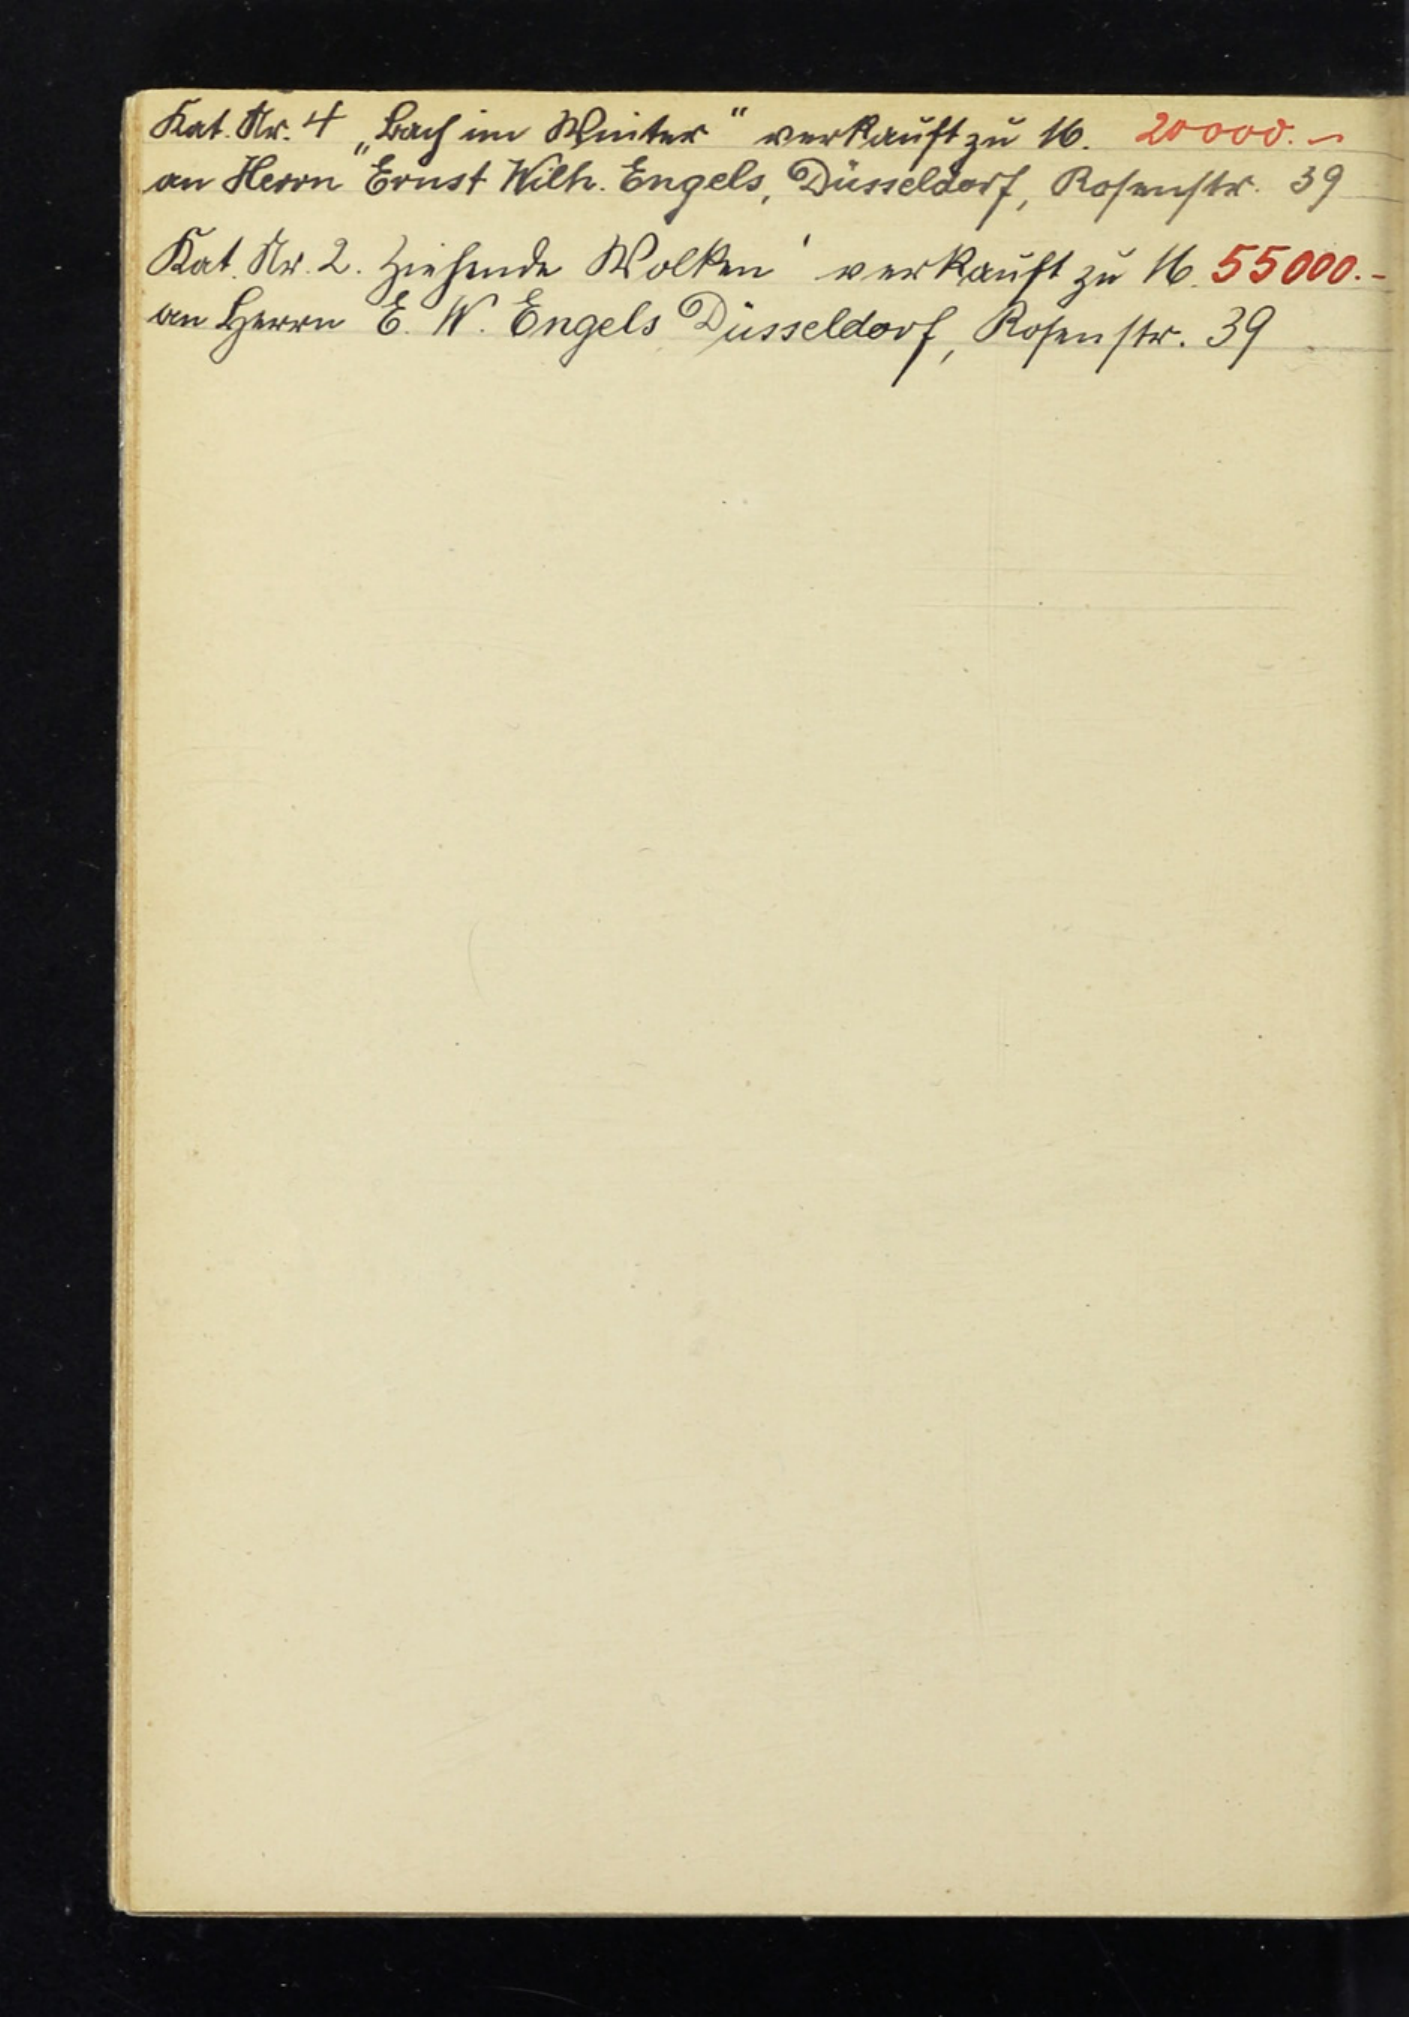 Kat. Nr. 4 „Bach im Winter" verkauft zu M. 20000.-
an Herrn Ernst Wilh. Engels, Düsseldorf, Rosenstr. 39
Kat. Nr. 2. Ziehende Wolken ' verkauft zu M. 55000.-
an Herrn E. W. Engels Düsseldorf, Rosenstr. 39